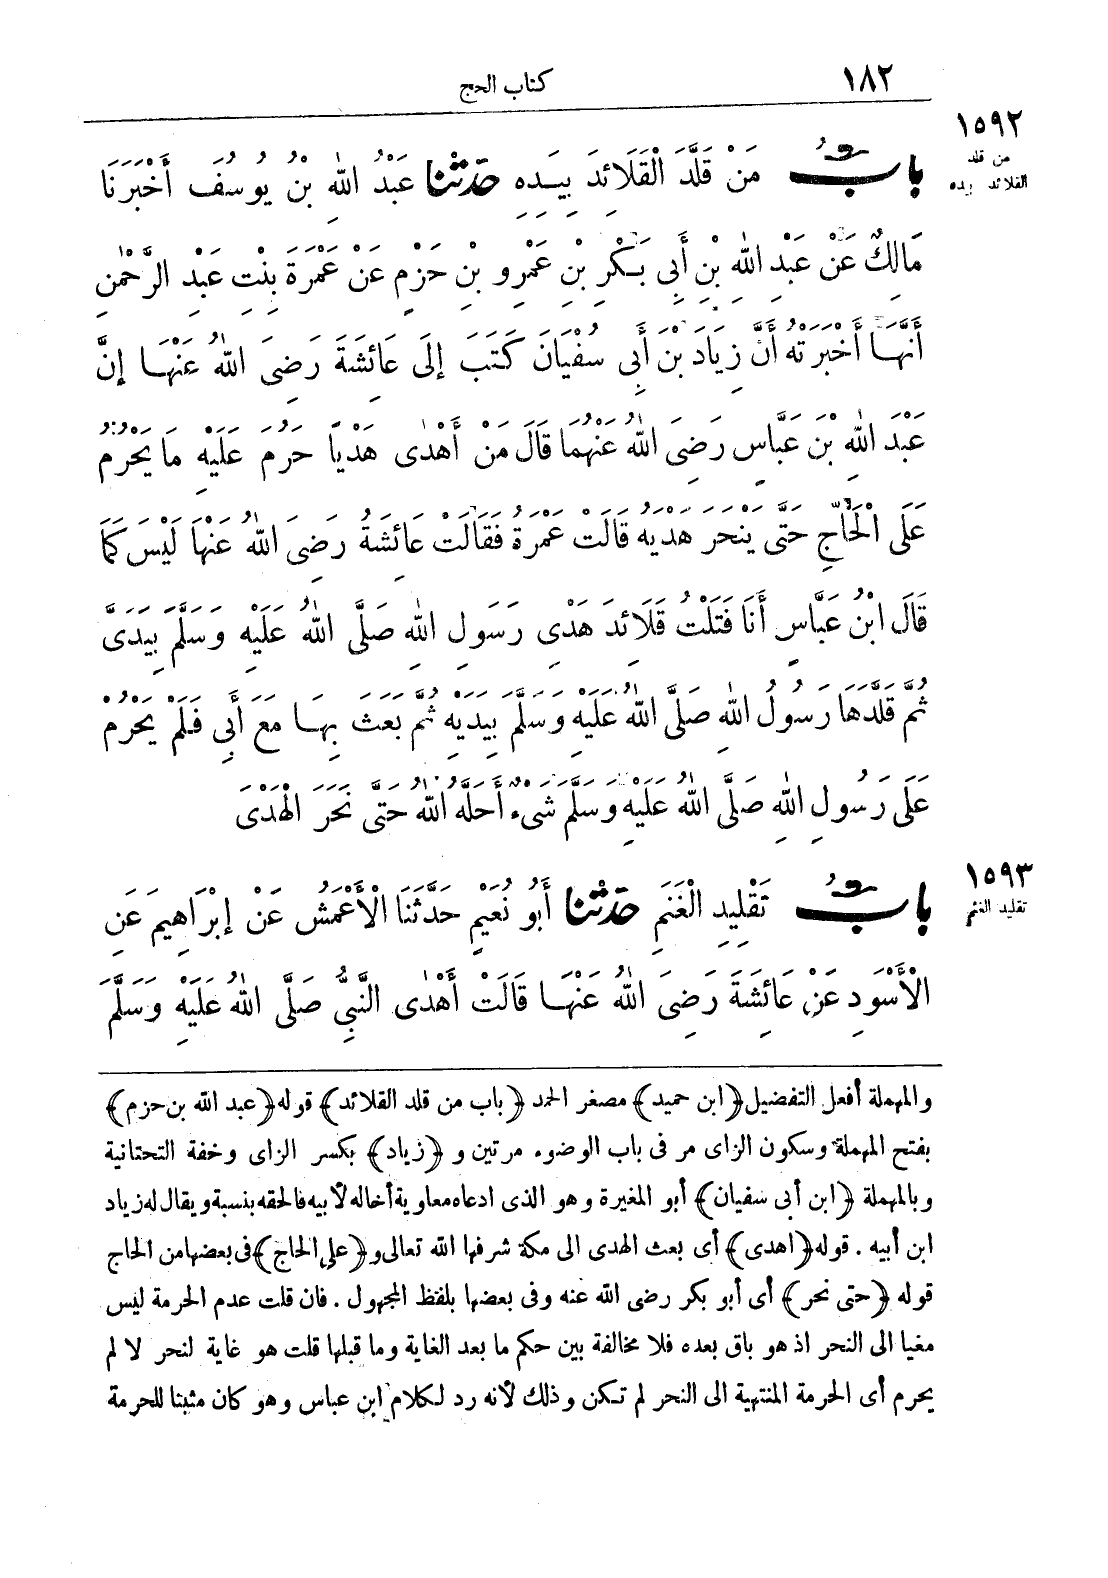 ١٨٢
كتاب الحج
١٥٩٢
من قلد
القلائد بيده
بابُ مَنْ قَلَّدَ الْقَلَائِدَ بِيَدِهِ حَدَّثَنَا عَبْدُ اللهِ بْنُ يُوسُفَ أَخْبَرَنَا
مَالِكٌ عَنْ عَبْدِ اللهِ بْنِ أَبِي بَكْرِ بْنِ عَمْرِو بْنِ حَزْمٍ عَنْ عَمْرَةَ بِنْتِ عَبْدِ الرَّحْمٰنِ
أَنَّهَا أَخْبَرَتْهُ أَنَّ زِيَادَ بْنَ أَبِي سُفْيَانَ كَتَبَ إِلَى عَائِشَةَ رَضِيَ اللهُ عَنْهَا إِنَّ
عَبْدَ اللهِ بْنَ عَبَّاسٍ رَضِيَ اللهُ عَنْهُمَا قَالَ مَنْ أَهْدَى هَدْيًا حَرُمَ عَلَيْهِ مَا يَحْرُمُ
عَلَى الْحَاجِّ حَتَّى يَنْحَرَ هَدْيَهُ قَالَتْ عَمْرَةُ فَقَالَتْ عَائِشَةُ رَضِيَ اللهُ عَنْهَا لَيْسَ كَمَا
قَالَ ابْنُ عَبَّاسٍ أَنَا فَتَلْتُ قَلَائِدَ هَدْىِ رَسُولِ اللهِ صَلَّى اللهُ عَلَيْهِ وَسَلَّمَ بِيَدَىَّ
ثُمَّ قَلَّدَهَا رَسُولُ اللهِ صَلَّى اللهُ عَلَيْهِ وَسَلَّمَ بِيَدَيْهِ ثُمَّ بَعَثَ بِهَا مَعَ أَبِي فَلَمْ يَحْرُمْ
عَلَى رَسُولِ اللهِ صَلَّى اللهُ عَلَيْهِ وَسَلَّمَ شَىْءٌ أَحَلَّهُ اللهُ حَتَّى نَحَرَ الْهَدْىَ
١٥٩٣
تقليد الغنم
بابُ تَقْلِيدِ الْغَنَمِ حَدَّثَنَا أَبُو نُعَيْمٍ حَدَّثَنَا الْأَعْمَشُ عَنْ إِبْرَاهِيمَ عَنِ
الْأَسْوَدِ عَنْ عَائِشَةَ رَضِيَ اللهُ عَنْهَا قَالَتْ أَهْدَى النَّبِيُّ صَلَّى اللهُ عَلَيْهِ وَسَلَّمَ
والمهملة أفعل التفضيل ﴿ابن حميد﴾ مصغر الحمد ﴿باب من قلد القلائد﴾ قوله ﴿عبد الله بن حزم﴾
بفتح المهملة وسكون الزاى مر فى باب الوضوء مرتين و ﴿زياد﴾ بكسر الزاى وخفة التحتانية
وبالمهملة ﴿ابن أبى سفيان﴾ أبو المغيرة وهو الذى ادعاه معاوية أخا له لأبيه فالحقه بنسبة ويقال له زياد
ابن أبيه . قوله ﴿اهدى﴾ أى بعث الهدى الى مكة شرفها الله تعالى و ﴿على الحاج﴾ فى بعضها من الحاج
قوله ﴿حتى نحر﴾ أى أبو بكر رضى الله عنه وفى بعضها بلفظ المجهول . فان قلت عدم الحرمة ليس
مغيا الى النحر اذ هو باق بعده فلا مخالفة بين حكم ما بعد الغاية وما قبلها قلت هو غاية لنحر لا لم
يحرم أى الحرمة المنتهية الى النحر لم تكن وذلك لأنه رد لكلام ابن عباس وهو كان مثبتا للحرمة